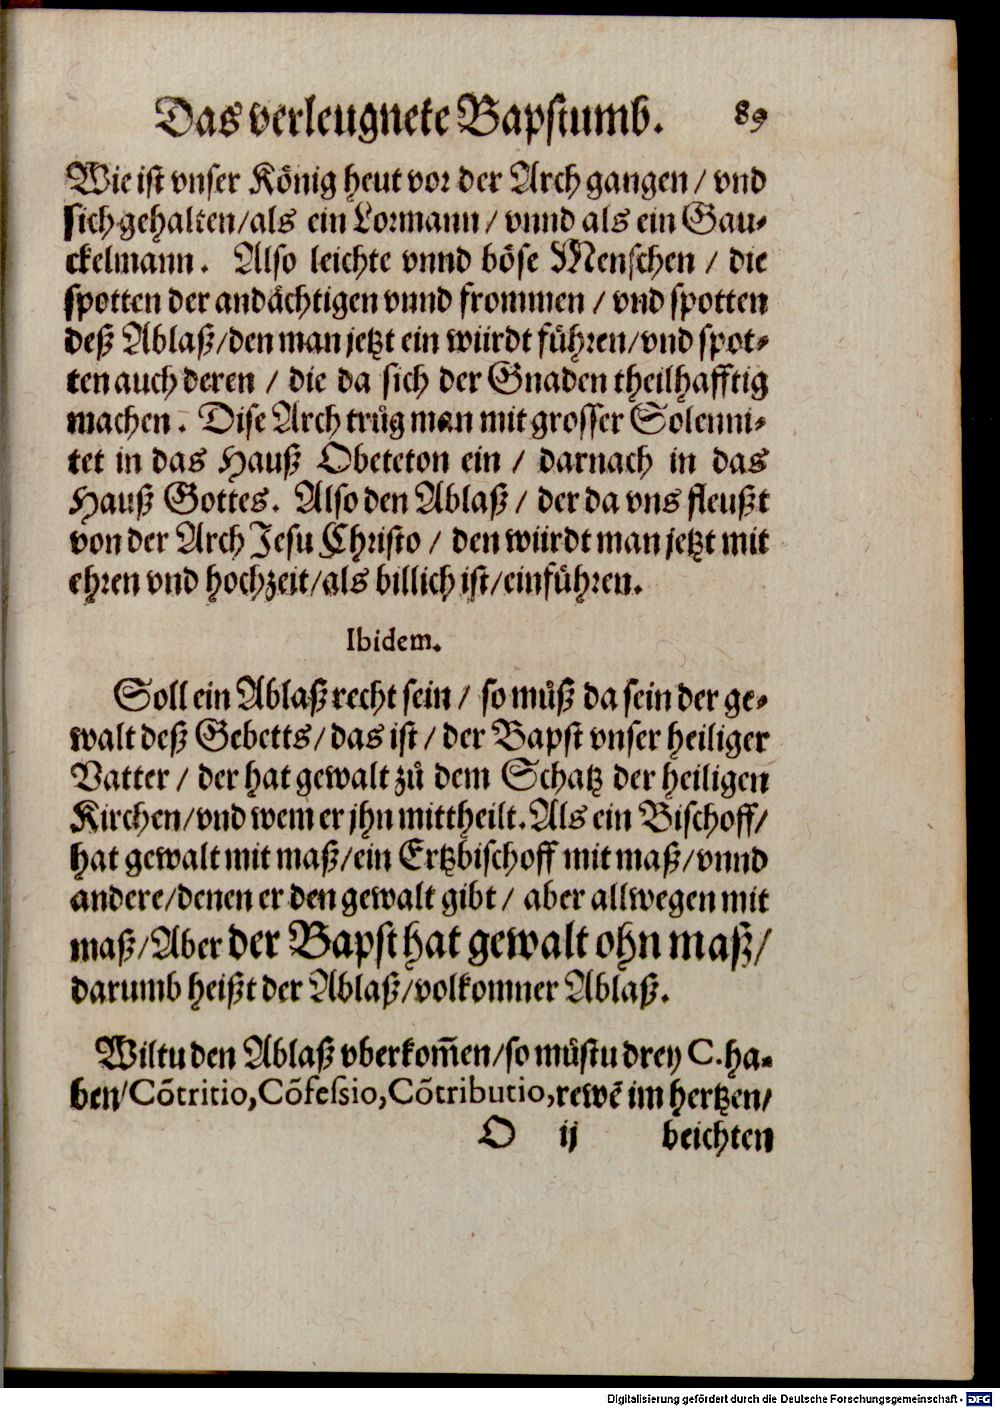 Das verleugnete Bapstumb. 89
Wie ist vnser König heut vor der Arch gangen / vnd
sich gehalten/als ein Lormann / vnnd als ein Gau-
ckelmann. Also leichte vnnd böse Menschen / die
spotten der andächtigen vnnd frommen / vnd spotten
deß Ablaß/den man jetzt ein würdt führen/vnd spot-
ten auch deren / die da sich der Gnaden theilhafftig
machen. Dise Arch trůg man mit grosser Solenni-
tet in das Hauß Obeteton ein / darnach in das
Hauß Gottes. Also den Ablaß / der da vns fleußt
von der Arch Jesu Christo / den würdt man jetzt mit
ehren vnd hochzeit/als billich ist/einführen.
Ibidem.
Soll ein Ablaß recht sein / so můß da sein der ge-
walt deß Gebetts/das ist/der Bapst vnser heiliger
Vatter / der hat gewalt zů dem Schatz der heiligen
Kirchen/vnd wem er jhn mittheilt. Als ein Bischoff/
hat gewalt mit maß/ein Ertzbischoff mit maß/vnnd
andere/denen er den gewalt gibt / aber allwegen mit
maß/Aber der Bapst hat gewalt ohn maß/
darumb heißt der Ablaß/volkomner Ablaß.
Wiltu den Ablaß vberkom̃en/so můstu drey C. ha-
ben/Cõtritio, Cõfessio, Cõtributio, rewẽ im hertzen/
O ij beichten
Digitalisierung gefördert durch die Deutsche Forschungsgemeinschaft - DFG